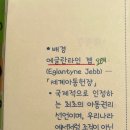 • 배경
에글란타인 젭
(Eglantyne Jebb) —
「세계아동헌장」
• 국제적으로 인정하
는 최초의 아동권리
선언이며, 우리나라